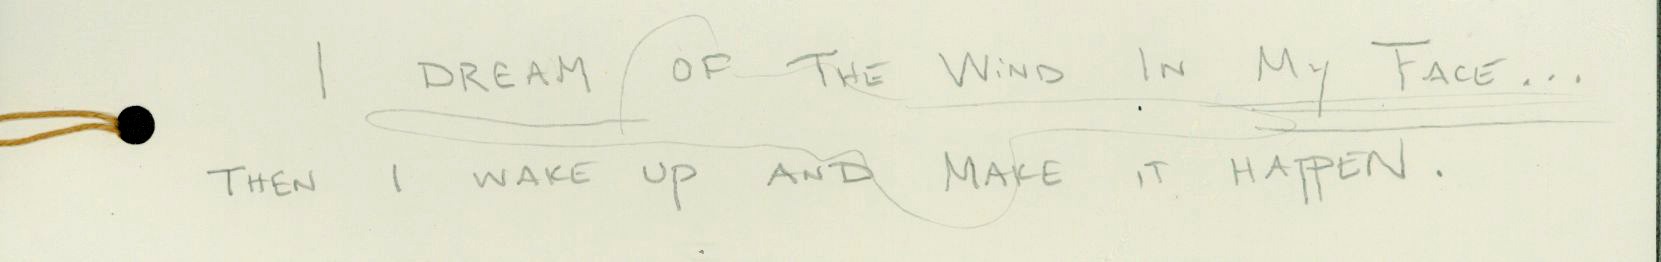 I DREAM OF THE WIND IN MY FACE...
THEN I WAKE UP AND MAKE IT HAPPEN.